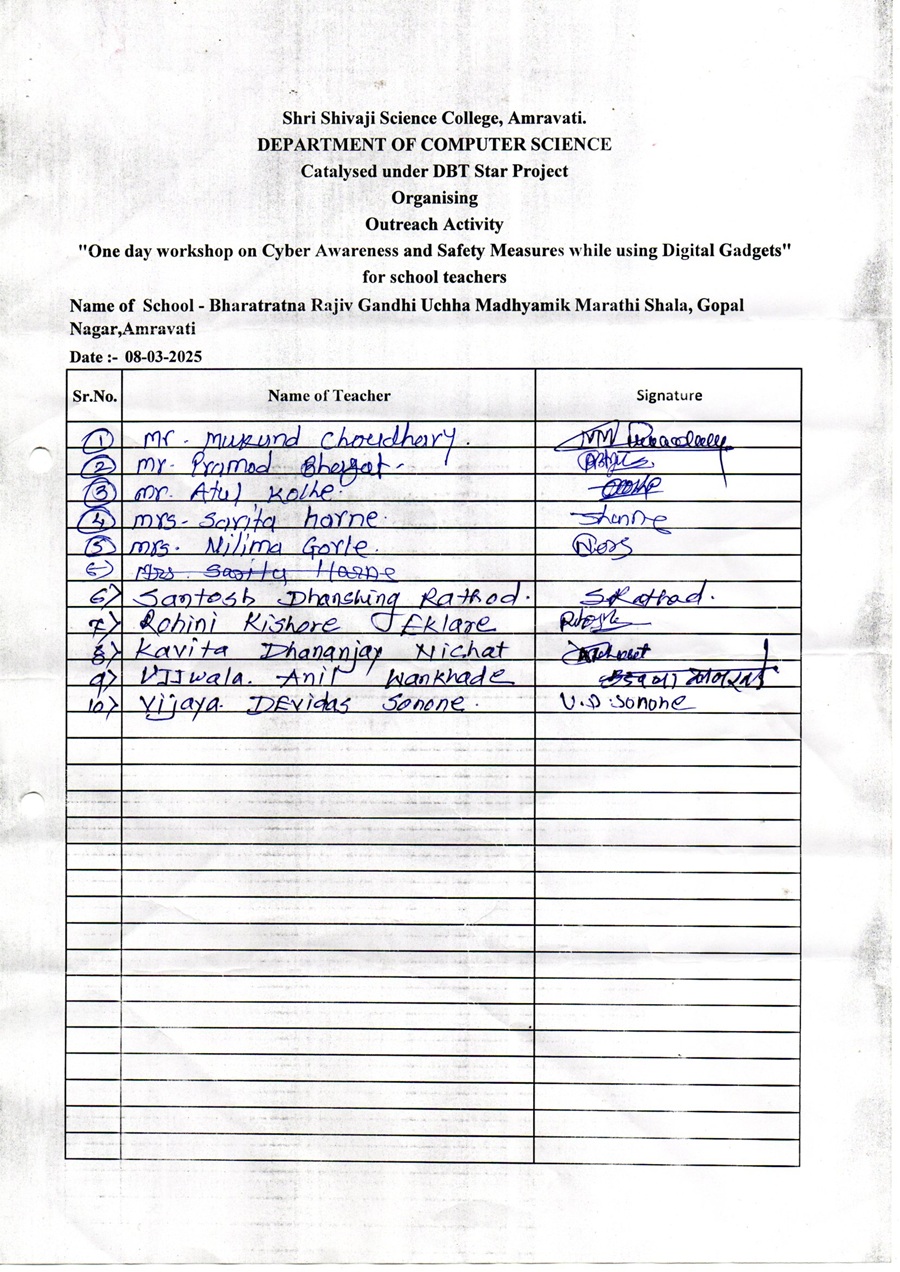 Shri Shivaji Science College, Amravati.
DEPARTMENT OF COMPUTER SCIENCE
Catalysed under DBT Star Project
Organising
Outreach Activity
"One day workshop on Cyber Awareness and Safety Measures while using Digital Gadgets"
for school teachers
Name of School - Bharatratna Rajiv Gandhi Uchha Madhyamik Marathi Shala, Gopal
Nagar,Amravati
Date :- 08-03-2025
Sr.No. Name of Teacher Signature
1 Mr. Mukund Choudhary.
2 Mr. Pramod
3 Mr. Atul Kolhe.
4 Mrs. Sarita harne.
5 Mrs. Nilima Gorle.
6) Mrs. Sarita Harne
6) Santosh Dhanshing Rathod. SRathod.
7) Rohini Kishore Eklare
8) Kavita Dhananjay Nichat
9) Anil Wankhade
10) Vijaya. DEvidas Sonone. V.D.Sonone